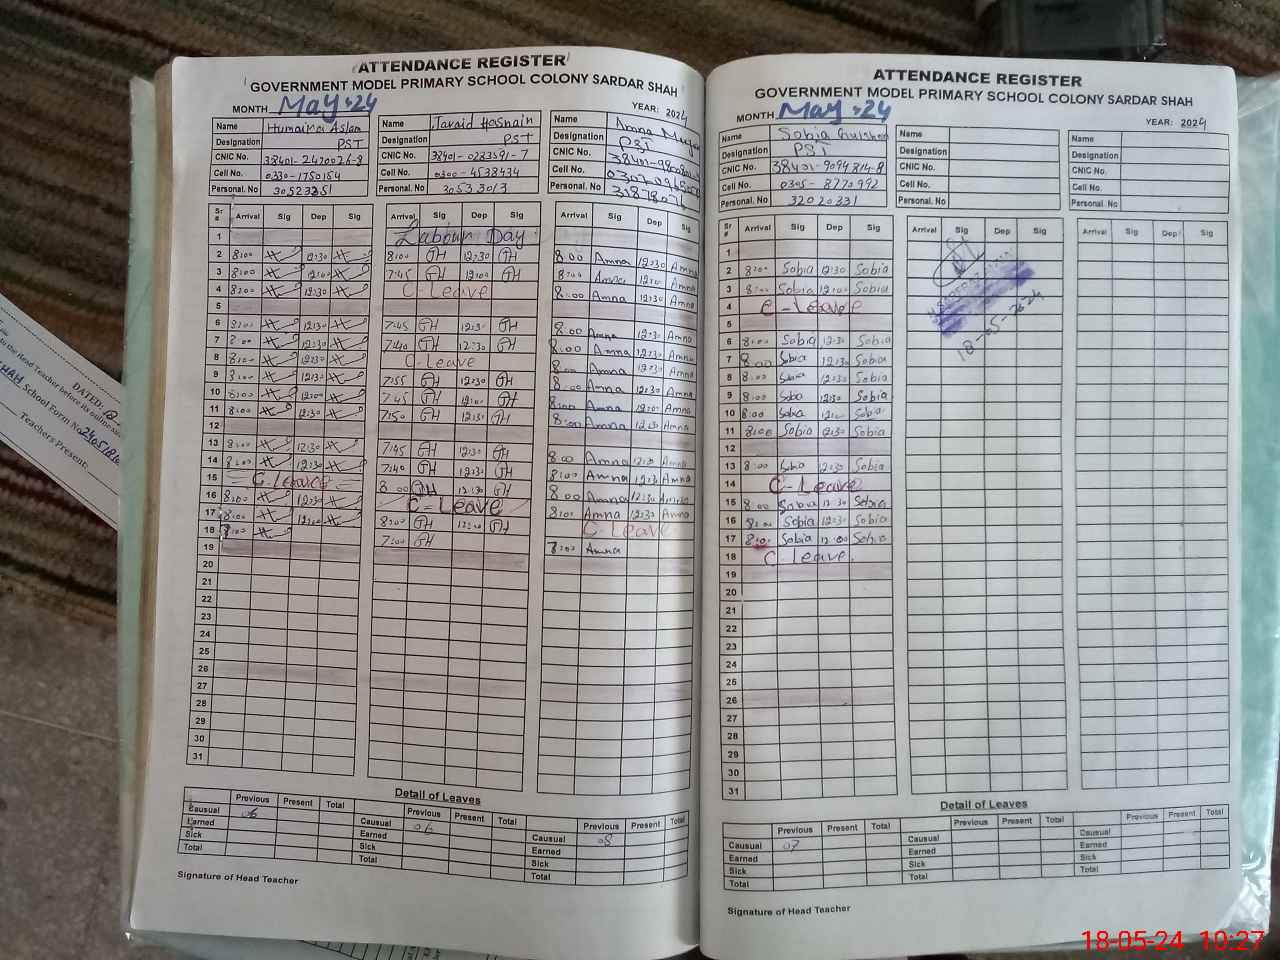 ATTENDANCE REGISTER
GOVERNMENT MODEL PRIMARY SCHOOL COLONY SARDAR SHAH
MONTH May 24 YEAR: 2024
Name Humaira Aslam
Designation PST
CNIC No. 38401-2420026-8
Cell No. 0330-1750154
Personal. No 30523351
Name Javaid Hasnain
Designation PST
CNIC No. 38401-0283591-7
Cell No. 0300-4538434
Personal. No 30533013
Name Amna
Designation PST
CNIC No.
Cell No.
Personal. No
Sr # Arrival Sig Dep Sig Arrival Sig Dep Sig Arrival Sig Dep Sig
1 Labour Day
2 8:00 12:30 8:00 JH 12:30 JH 8:00 Amna 12:30 Amna
3 8:00 12:00 7:45 JH 12:00 JH 8:00 Amna 12:00 Amna
4 8:00 12:30 C-Leave 8:00 Amna 12:30 Amna
5
6 8:00 12:30 7:45 JH 12:30 JH 8:00 Amna 12:30 Amna
7 8:00 12:30 7:40 JH 12:30 JH 8:00 Amna 12:30 Amna
8 8:00 12:30 C-Leave 8:00 Amna 12:30 Amna
9 8:00 12:30 7:55 JH 12:30 JH 8:00 Amna 12:30 Amna
10 8:00 12:00 7:45 JH 12:00 JH 8:00 Amna 12:00 Amna
11 8:00 12:30 7:50 JH 12:30 JH 8:00 Amna 12:30 Amna
12
13 8:00 12:30 7:45 JH 12:30 JH 8:00 Amna 12:30 Amna
14 8:00 12:30 7:40 JH 12:30 JH 8:00 Amna 12:30 Amna
15 C-Leave 8:00 JH 12:30 JH 8:00 Amna 12:30 Amna
16 8:00 12:30 C-Leave 8:00 Amna 12:30 Amna
17 8:00 12:00 8:00 JH 12:00 JH C-Leave
18 8:00 7:00 JH 8:00 Amna
19
20
21
22
23
24
25
26
27
28
29
30
31
Detail of Leaves
Previous Present Total Previous Present Total Previous Present Total
Causual 06 Causual 06 Causual 08
Earned Earned Earned
Sick Sick Sick
Total Total Total
Signature of Head Teacher
ATTENDANCE REGISTER
GOVERNMENT MODEL PRIMARY SCHOOL COLONY SARDAR SHAH
MONTH May 24 YEAR: 2024
Name Sobia
Designation PST
CNIC No. 38401-9094814-8
Cell No. 0305-8770992
Personal. No 32020331
Name
Designation
CNIC No.
Cell No.
Personal. No
Name
Designation
CNIC No.
Cell No.
Personal. No
Sr # Arrival Sig Dep Sig Arrival Sig Dep Sig Arrival Sig Dep Sig
1
2 8:00 Sobia 12:30 Sobia
3 8:00 Sobia 12:00 Sobia
4 C-Leave
5
6 8:00 Sobia 12:30 Sobia
7 8:00 Sobia 12:30 Sobia
8 8:00 Sobia 12:30 Sobia
9 8:00 Sobia 12:30 Sobia
10 8:00 Sobia 12:00 Sobia
11 8:00 Sobia 12:30 Sobia
12
13 8:00 Sobia 12:30 Sobia
14 C-Leave
15 8:00 Sobia 12:30 Sobia
16 8:00 Sobia 12:30 Sobia
17 8:00 Sobia 12:00 Sobia
18 C-Leave
19
20
21
22
23
24
25
26
27
28
29
30
31
18-05-2024
Detail of Leaves
Previous Present Total Previous Present Total Previous Present Total
Causual 07 Causual Causual
Earned Earned Earned
Sick Sick Sick
Total Total Total
Signature of Head Teacher
DATED:
to the Head Teacher before its online
SHAH School Form No
Teachers Present:
18-05-24 10:27